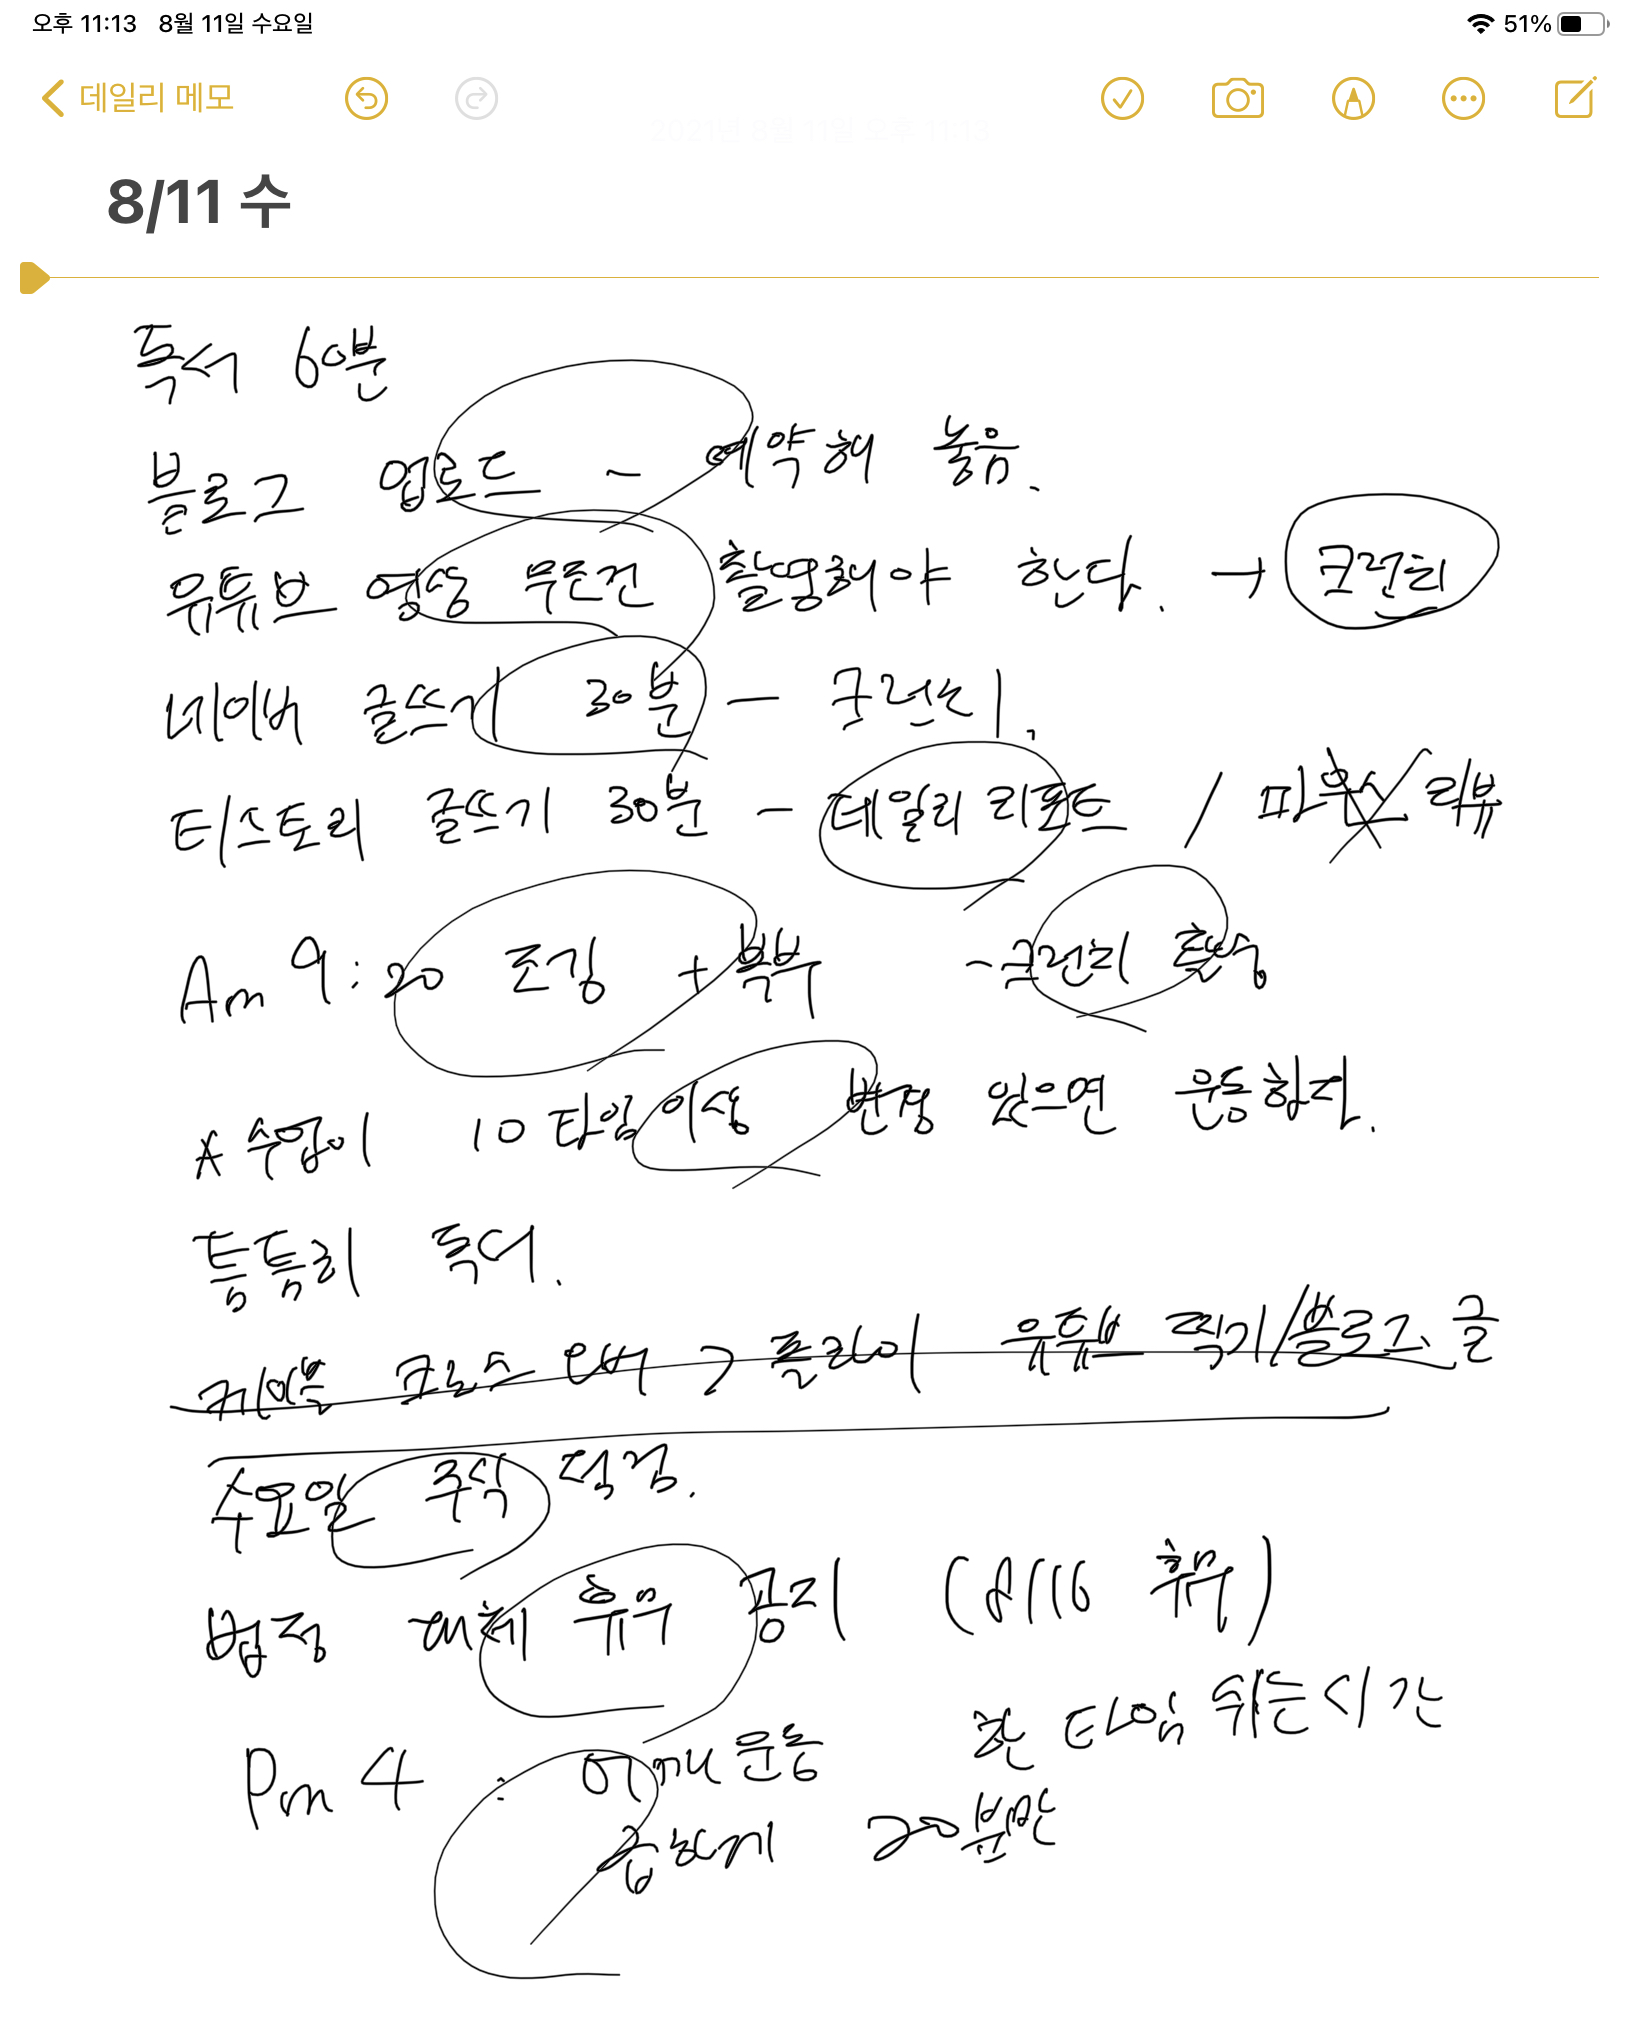 오후 11:13 8월 11일 수요일 51%
데일리 메모
2021년 8월 11일 오후 11:13
8/11 수
독서 60분
블로그 업로드 - 예약해 놓음.
유튜브 영상 무조건 촬영해야 한다. →
네이버 글쓰기 30분 -
티스토리 글쓰기 30분 - 데일리 리포트 / 리뷰
Am 9:20 조깅 + 복부 -
* 수업이 10타임 이상 변경 있으면 운동하자.
틈틈히 독서.
크로스 오버 > 플라이 유튜브 찍기/블로그 글
수요일 주식 점검.
법정 대체 휴무 공지 (8/16 휴무)
Pm 4 : 어깨 운동 한 타임 쉬는시간
20분만